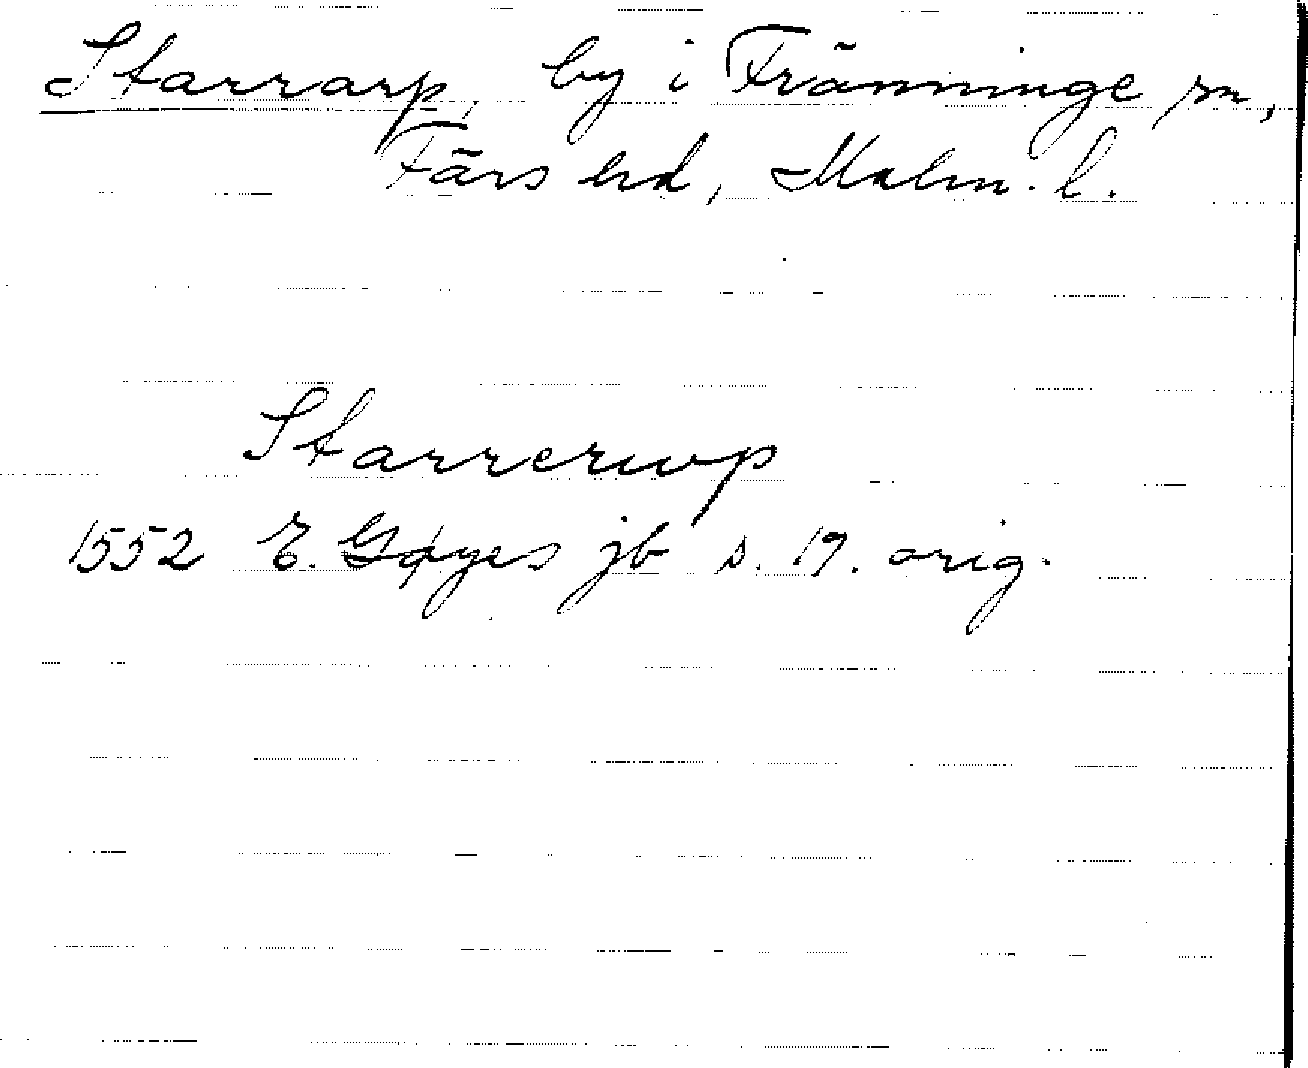 Starrarp, by i Fränninge sn,
Färs hd, Malm. l.
Starrerup
1552 E. Gøyes jb s. 19. orig.